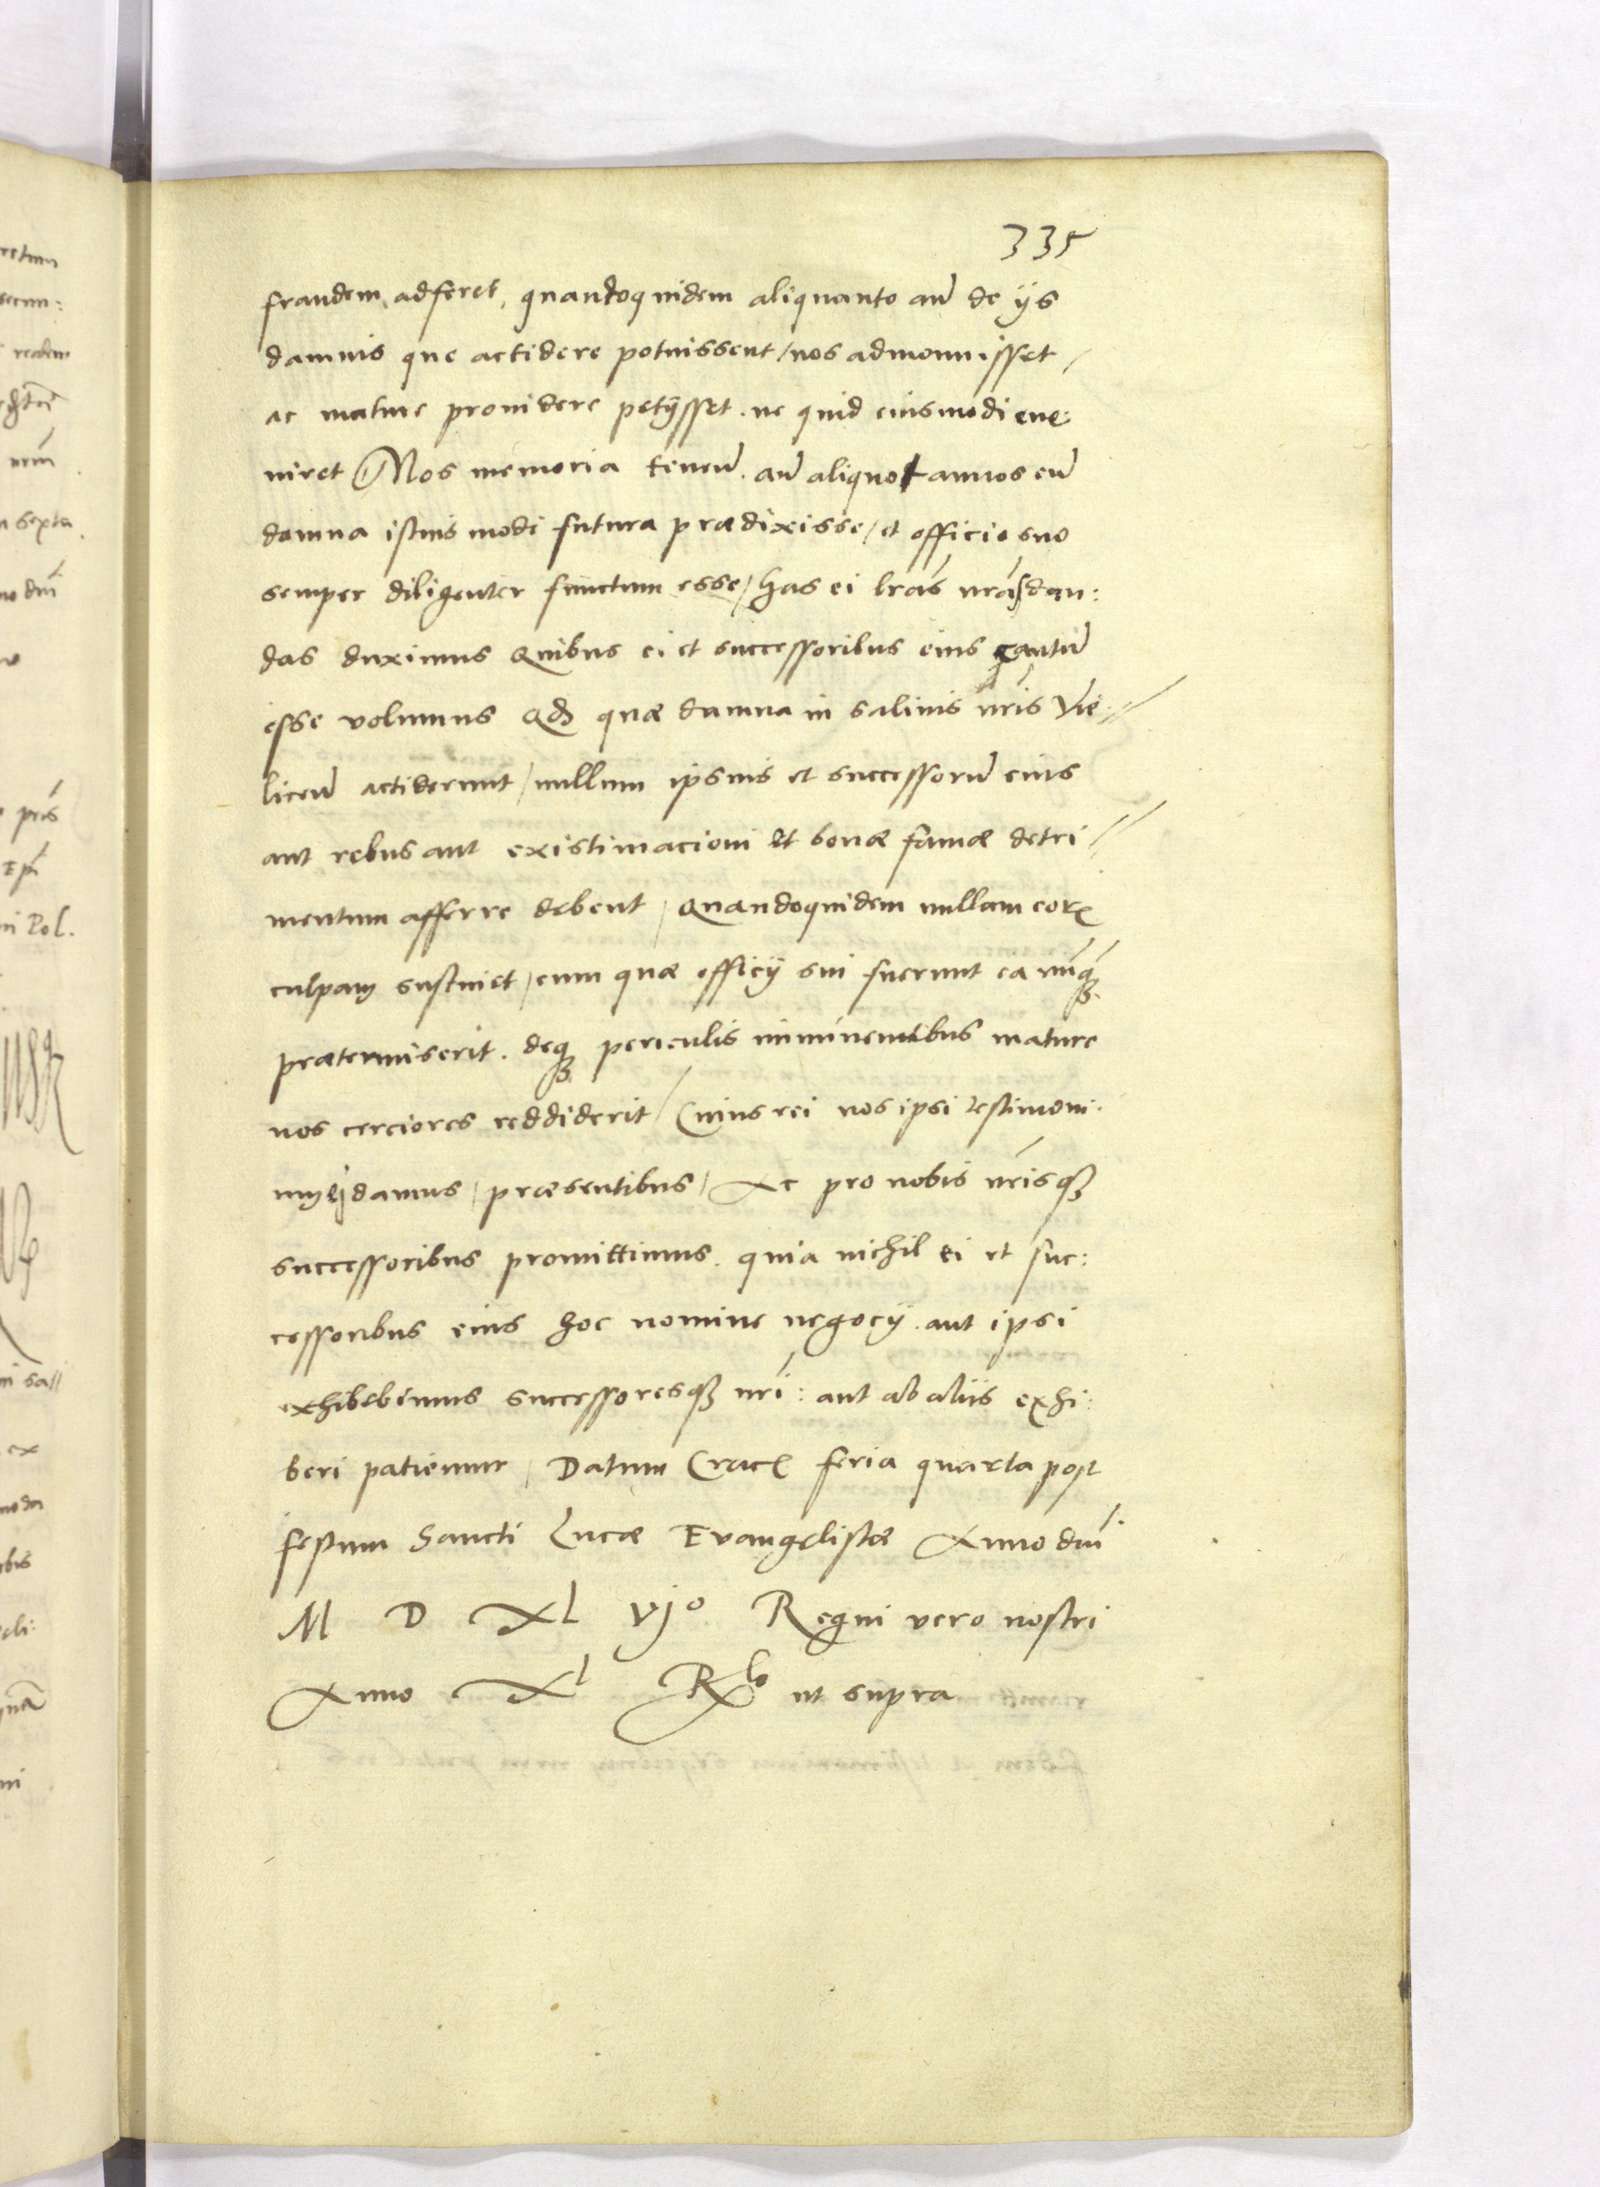 335
fraudem adferet, quandoquidem aliquanto añ de ijs
damnis que accidere potuissent / nos admonuisset /
ac mature providere petijsset. ne quid eiusmodi eve:
niret Nos memoria teneñ. añ aliquot annos eũ
damna istius modi futura prædixisse / et officio suo
semper diligenter functum esse / has ei lrás nrás dan:
das duximus Quibus ei et successoribus eius cautũ
esse volumus Qđ quæ damna in salinis nrís Vie //
liceñ acciderunt / nullum ipsius et successorũ eius
aut rebus aut existimacioni et bonæ famæ detri //
mentum afferre debent / Quandoquidem nullam eorꝝ
culpam sustinet / cum quæ officij sui fuerunt ea nũqꝫ
prætermiserit. deqꝫ periculis imminentibus mature
nos cerciores reddiderit / Cuius rei nos ipsi testimoni:
damus / præsentibus / Ac pro nobis nrísqꝫ
successoribus promittimus. quia nichil ei et suc:
cessoribus eius hoc nomine negocij. aut ipsi
exhibebimus successoresqꝫ nrí: aut ab aliis exhi:
beri patiemur / Datum Cracꝫ feria quarta post
festum Sancti Lucæ Evangelistæ Anno dñi
M D XL vjº Regni vero nostri
Anno XL Rlo ut supra